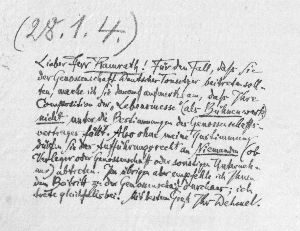 (28.1.4.)
Lieber Herr Ramrath! Für den Fall, daß Sie
der Genossenschaft Deutscher Tonsetzer beitreten soll-
ten, mache ich Sie darauf aufmerksam, daß Ihre
Composition der „Lebensmesse“ (als Bühnenwerk)
nicht unter die Bestimmungen des Genossenschafts-
vertrages fällt. Also ohne meine Zustimmung
dürfen Sie das Aufführungsrecht an Niemanden (ob
Verleger oder Genossenschaft oder sonstigen Unterneh-
mer) abtreten. Im übrigen aber empfehle ich Ihnen
den Beitritt zu der Genossenschaft durchaus; ich
gleichfalls bei. Mit bestem Gruß Ihr Dehmel.